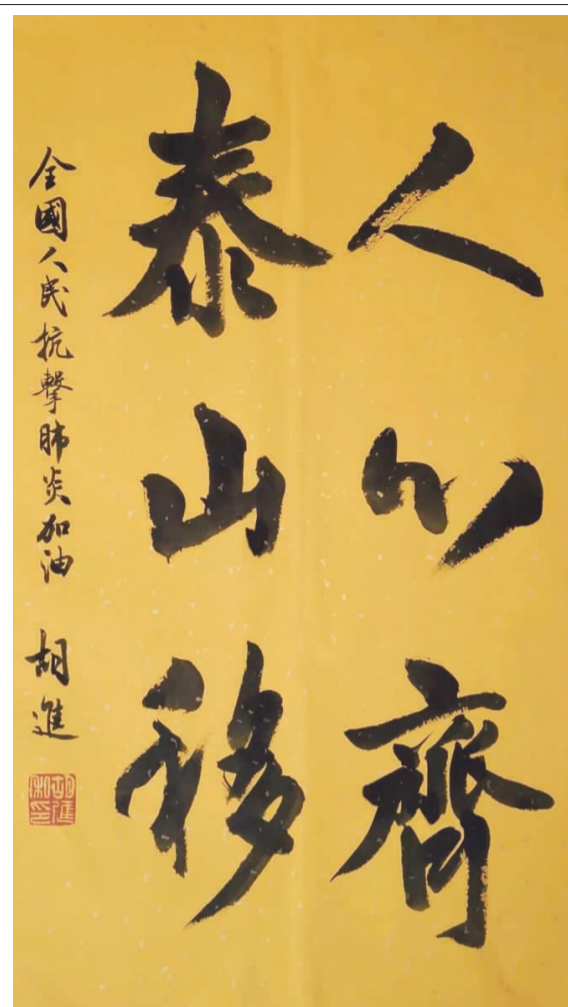 人心齊
泰山移
全國人民抗擊肺炎加油 胡進